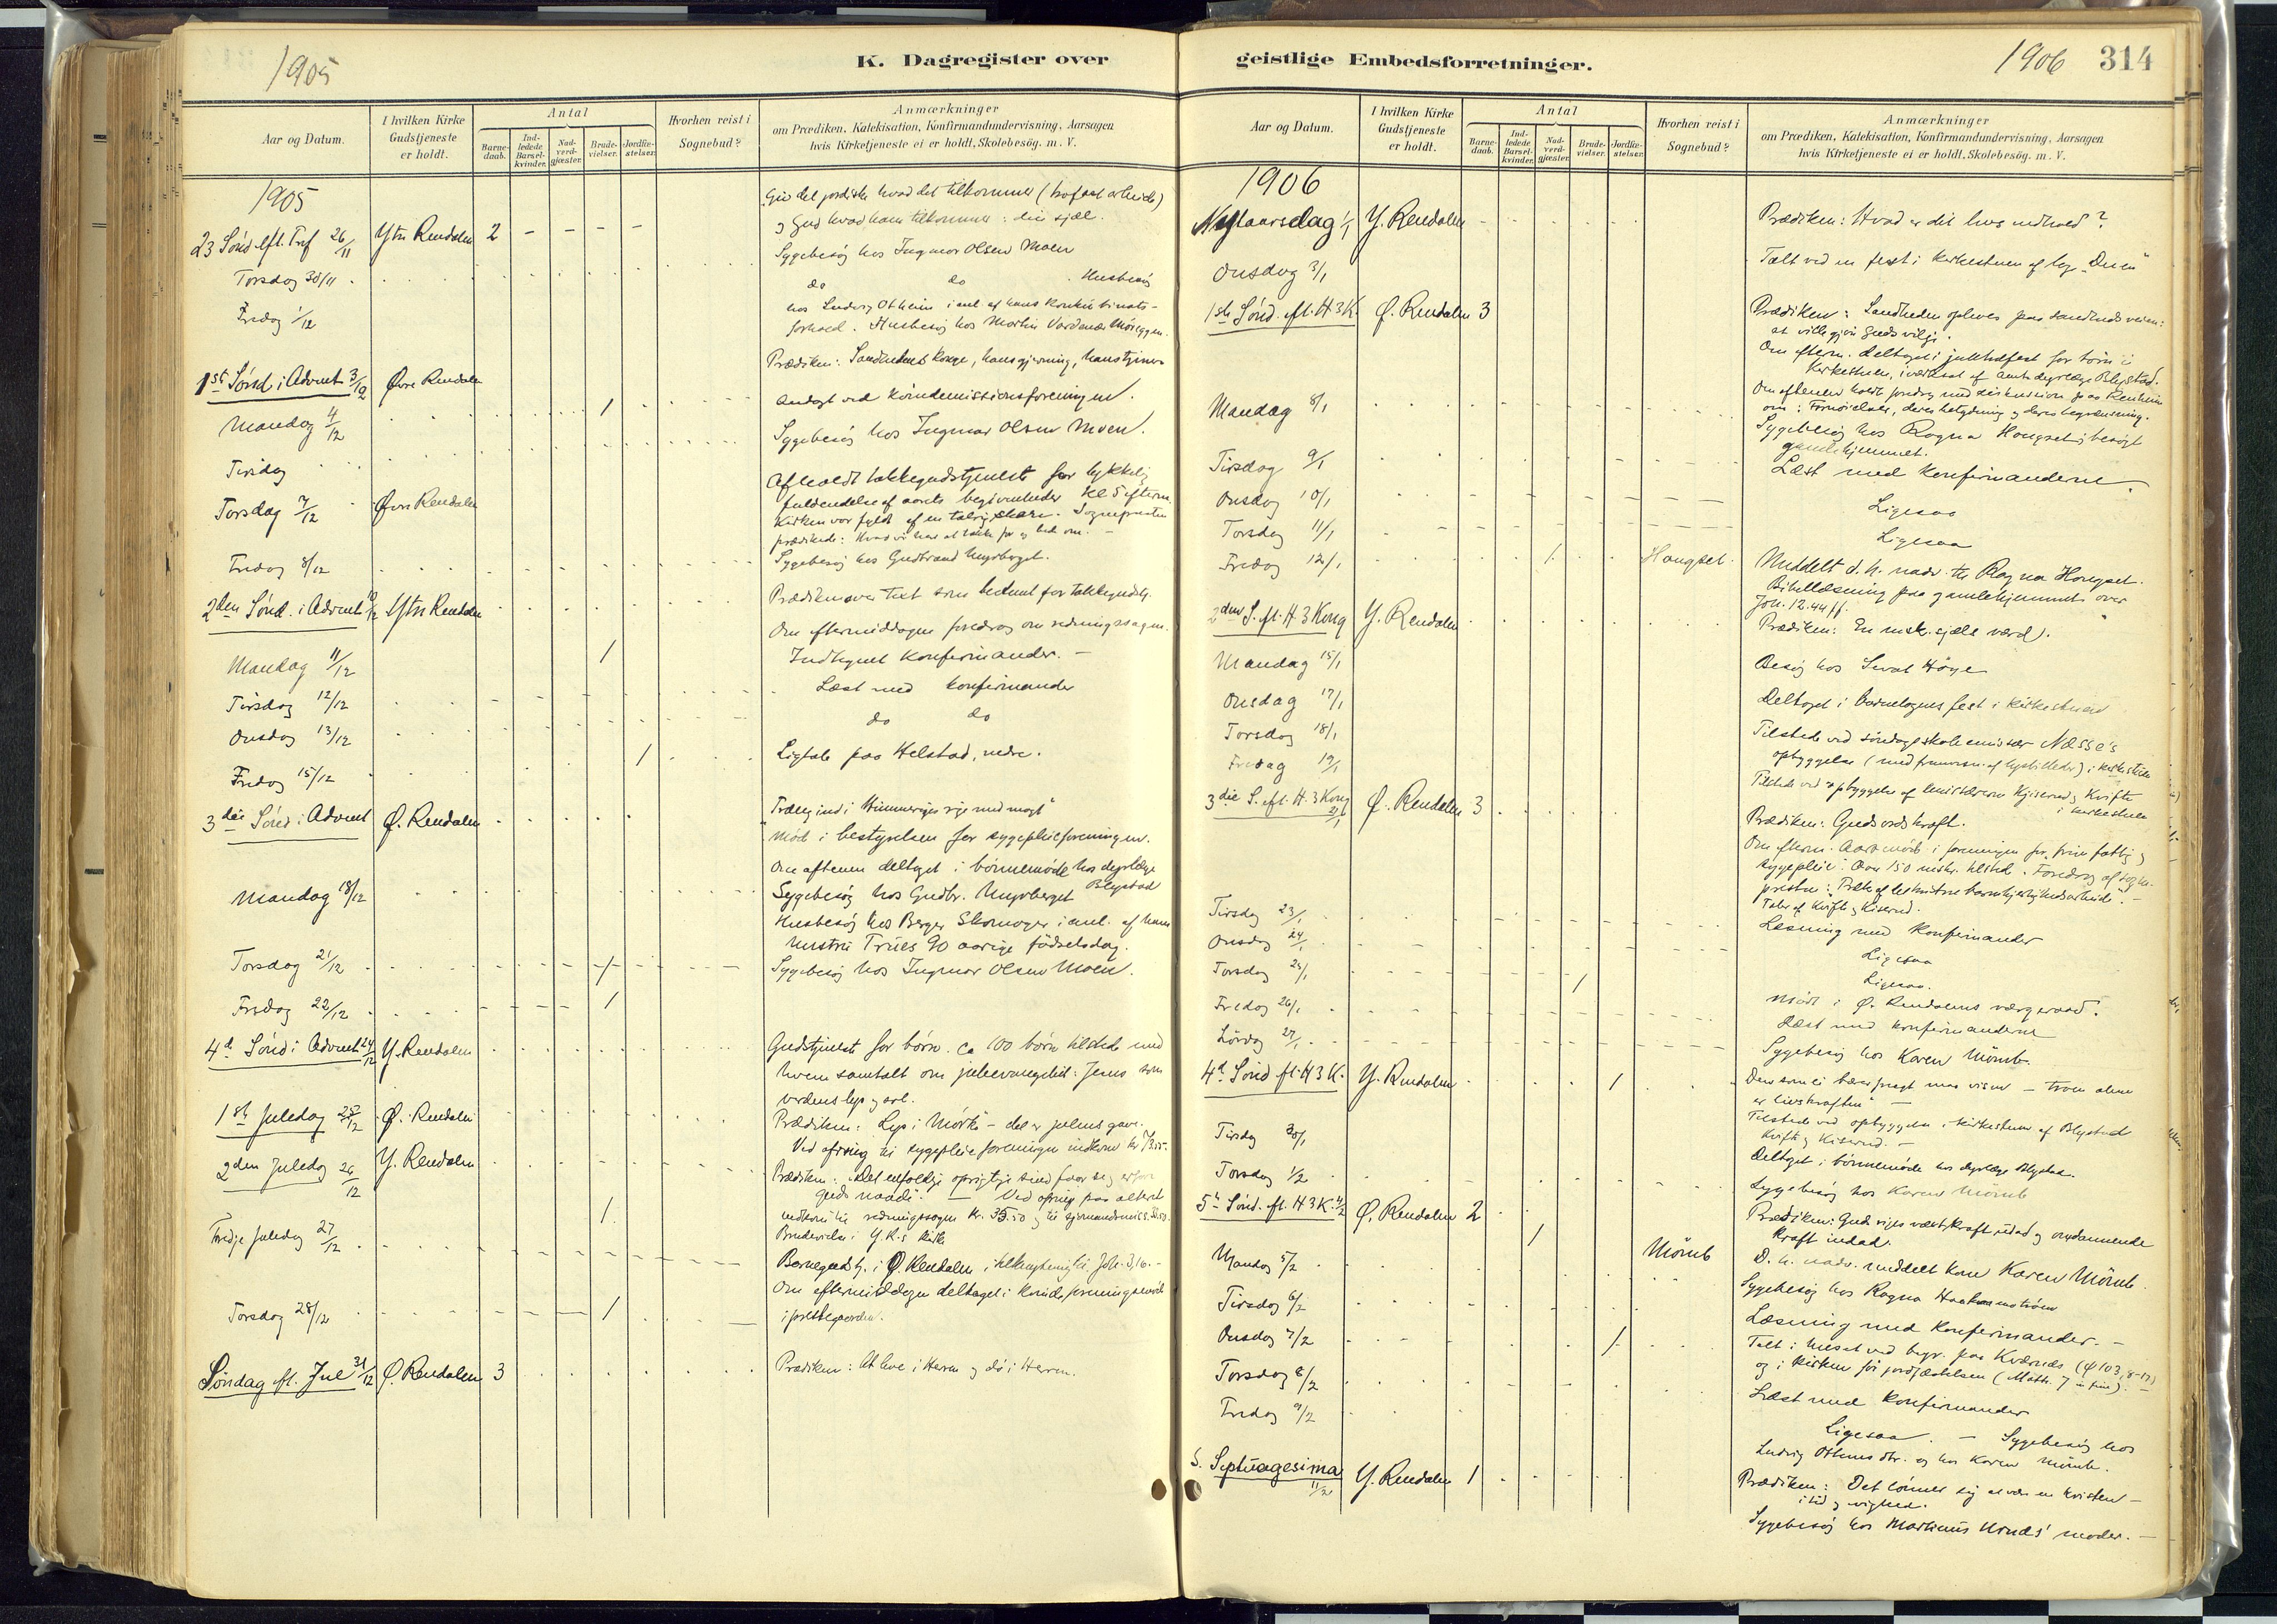 1905
K. Dagregister over
Aar og Datum.
I hvilken Kirke Gudstjeneste er holdt.
Antal
Barnedaab.
Indledede Barselkvinder.
Nadverdgjæster.
Brudevielser.
Jordfæstelser.
Hvorhen reist i Sognebud?
Anmærkninger
om Prædiken, Katekisation, Konfirmandundervisning, Aarsagen
hvis Kirketjeneste ei er holdt, Skolebesøg. m. V.
1905
Giv det jordiske hvad det tilkommer
23 Sønd eft. Tref 26/11 Ytre Rendalen 2 - - - -
og Gud hvad ham tilkommer: din sjæl.
Sygebesøg hos Ingmar Olsen Moen
Torsdag 30/11
do do Husbesøg
Fredag 1/12
hos Ludvig Otheim i anl af hans
forhold. Husbesøg hos Martin
Prædiken: Sandhedens Konge, hans gjerning, hans tjenere
1ste Sønd i Advent 3/12 Øvre Rendalen
Andagt ved Kinamissionsforeningen.
Mandag 4/12 1
Sygebesøg hos Ingmar Olsen Moen.
Tirsdag
Afholdt takkegudstjeneste for lykkelig
Torsdag 7/12 Øvre Rendalen
fuldendelse af aarets begivenheder Kl 5 efterm.
Kirken var fyldt af en talrig skare. Sognepresten
prædikede: Hvad vi har at takke for og bede om. -
Fredag 8/12
Sygebesøg hos Gudbrand
2den Sønd. i Advent 10/12 Ytre Rendalen
Prædiken over Text som bestemt for takkegudstj.
Om eftermiddagen foredrag om redningssagen.
Mandag 11/12 1
Indtegnet Konfirmander. -
Tirsdag 12/12
Læst med konfirmander
Onsdag 13/12
do do
Fredag 15/12 1
Ligtale paa Helstad, nedre.
3die Sønd i Advent Ø. Rendalen
ind i Himmeriges rige med magt"
Møde i bestyrelsen for sygepleieforeningen.
Om aftenen deltaget i børnemøde hos dyrlæge
Blystad
Mandag 18/12
Sygebesøg hos Gudbr.
Husbesøg hos Berger Skomager i anl. af hans
hustru 90 aarige fødselsdag.
Torsdag 21/12 1
Sygebesøg hos Ingmar Olsen Moen.
Fredag 22/12 1
4de Sønd i Advent 24/12 Y. Rendalen
Gudstjeneste for børn. ca 100 børn tilstede med
hvem samtalt om juleevangeliet: Jesus som
verdens lys og sol.
1ste Juledag 25/12 Ø. Rendalen
Prædiken: Lys i Mørke - det er julens gave.
Ved ofring til sygepleieforeningen indkom kr
2den Juledag 26/12 Y. Rendalen
Prædiken: Det enfoldige oprigtige sind faar se og
Guds naade. - Ved ofring paa alteret
indkom til redningssagen kr. 35.50 og til sjømandsmiss.
Tredje Juledag 27/12 1
Brudevielse i Y. R.s kirke
Barnegudstj. i Ø. Rendalen i Joh. 3,16. -
Om eftermiddagen deltaget i
Torsdag 28/12 1
i prestegaarden.
Søndag eft. Jul 31/12 Ø. Rendalen 3
Prædiken: At leve i Herren og dø i Herren.
geistlige Embedsforretninger.
1906 314
Aar og Datum.
I hvilken Kirke Gudstjeneste er holdt.
Antal
Barnedaab.
Indledede Barselkvinder.
Nadverdgjæster.
Brudevielser.
Jordfæstelser.
Hvorhen reist i Sognebud?
Anmærkninger
om Prædiken, Katekisation, Konfirmandundervisning, Aarsagen
hvis Kirketjeneste ei er holdt, Skolebesøg. m. V.
1906
Nytaarsdag 1/1 Y. Rendalen
Prædiken: Hvad er dit livs indhold?
Onsdag 3/1
Talt ved en fest i kirkestuen af
1ste Sønd. eft. H 3 K. Ø. Rendalen 3
Prædiken: Sandheden opleves paa sandheds veien:
at ville gjøre Guds vilje.
Om efterm. deltaget i juletræfest for børn i
Kirkestuen, iværksat af amtsdyrlæge Blystad.
Om aftenen holdt foredrag med diskussion paa
om: Fornøielser, deres betydning og deres begrænsning.
Mandag 8/1
Sygebesøg hos Ragna Haugset; besøgt
gamlehjemmet.
Tirsdag 9/1
Læst med konfirmanderne.
Onsdag 10/1
Ligesaa
Torsdag 11/1
Ligesaa
Fredag 12/1 1 Haugset.
Meddelt d. h. nadv. til Ragna Haugset.
Bibellæsning paa gamlehjemmet over
Joh. 12.44 ff.
2den S. eft. H 3 Kong Y. Rendalen
Prædiken: En mskr. sjæls værd.
Mandag 15/1
Besøg hos
Onsdag 17/1
Deltaget i fest i kirkestuen
Torsdag 18/1
Tilstede ved søndagsskoleemissær Næsse's
opbyggelse (med fremvisn. af lysbilleder) i kirkestuen
Fredag 19/1
Tilstede ved opbyggelse af Kiserud og Kvifte
i kirkestuen
3die S. eft. H. 3 Kong 21/1 Ø. Rendalen 3
Prædiken: Guds ords kraft.
Om efterm. Aarsmøde i foreningen for fri fattig og
sygepleie. Over 150 mskr. tilstede. Foredrag af sogne-
presten:
Taler af Kvifte og Kiserud.
Tirsdag 23/1
Læsning med konfirmander
Onsdag 24/1
Ligesaa
Torsdag 25/1 1
Ligesaa.
Fredag 26/1
Møde i Ø. Rendalens værgeraad.
Læst med konfirmanderne
Lørdag 27/1
Sygebesøg hos Karen Mømb.
4de Sønd eft. H 3 K. Y. Rendalen 1
er livskraften" -
Tirsdag 30/1
Tilstede ved opbyggelse i kirkestuen af Blystad
Kvifte og Kiserud. -
Deltaget i børnemøde hos dyrlæge Blystad.
Torsdag 1/2
Sygebesøg hos Karen Mømb
5te Sønd. eft. H 3 K. 4/2 Ø. Rendalen 2
Prædiken: Guds riges vækstkraft udad og omdannende
kraft indad.
Mandag 5/2 1 Mømb
D. h. nadv. meddelt kone Karen Mømb.
Tirsdag 6/2
Sygebesøg hos Ragna
Læsning med konfirmander. -
Onsdag 7/2 1
Talt i huset ved begr. paa Kværnes (ψ 103, 8-17)
og i kirken før jordfæstelsen (Matth. 7 in fine). -
Torsdag 8/2
Læst med konfirmander
Fredag 9/2
Ligesaa. - Sygebesøg hos
Ludvig og hos Karen Mømb.
S. Septuagesima 11/2 Y. Rendalen 1
Prædiken: Det lønner sig at være en kristen -
i tid og evighed.
Sygebesøg hos Martinus moder. -